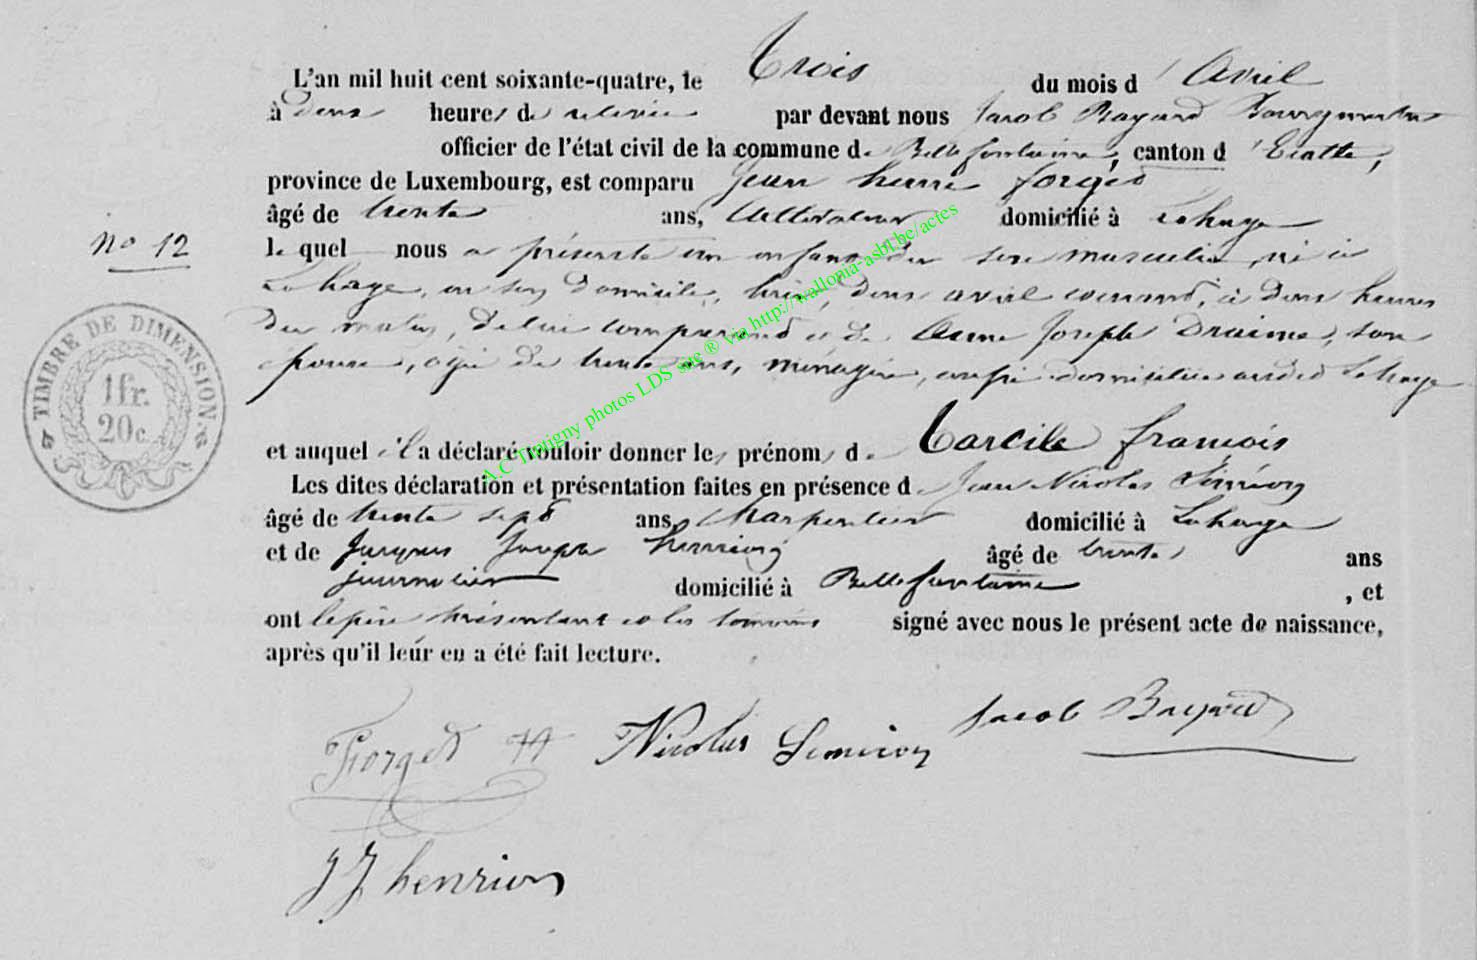 L'an mil huit cent soixante-quatre, le Trois du mois d'Avril
à deux heures de relevée par devant nous Jacob Bayard Bourgmestre
officier de l'état civil de la commune de Bellefontaine, canton d'Etalle,
province de Luxembourg, est comparu Jean henri forget
âgé de trente ans, domicilié à Lahage
N° 12
le quel nous a présenté un enfant du sexe masculin, né à
Lahage, en son domicile, hier, deux avril courant, à deux heures
du matin, de lui comparant et de Anne Joseph Draime, son
épouse, agée de trente ans, ménagère, aussi domiciliée audit Lahage
TIMBRE DE DIMENSION.
1 fr.
20 c.
et auquel il a déclaré vouloir donner les prénoms de Tarcile françois
Les dites déclaration et présentation faites en présence de Jean Nicolas Siméon
âgé de trente sept ans, charpentier domicilié à Lahage
et de Jacques Joseph henrion âgé de trente ans
journalier domicilié à Bellefontaine, et
ont le père présentant et les témoins signé avec nous le présent acte de naissance,
après qu'il leur en a été fait lecture.
Forget JH Nicolas Simeon Jacob Bayard
JJ henrion
A.C Tintigny photos LDS site ® via http://wallonia-asbl.be/actes